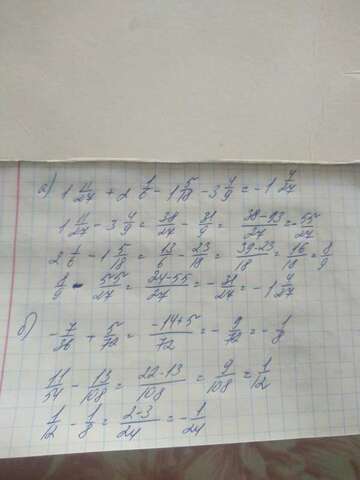 а) 1 11/27 + 2 1/6 - 1 5/18 - 3 4/9 = -1 4/27
1 11/27 - 3 4/9 = 38/27 - 31/9 = 38-93/27 = 55/27
2 1/6 - 1 5/18 = 13/6 - 23/18 = 39-23/18 = 16/18 = 8/9
8/9 - 55/27 = 24-55/27 = -31/27 = -1 4/27
б) -7/36 + 5/72 = -14+5/72 = -9/72 = -1/8
11/54 - 13/108 = 22-13/108 = 9/108 = 1/12
1/12 - 1/8 = 2-3/24 = -1/24